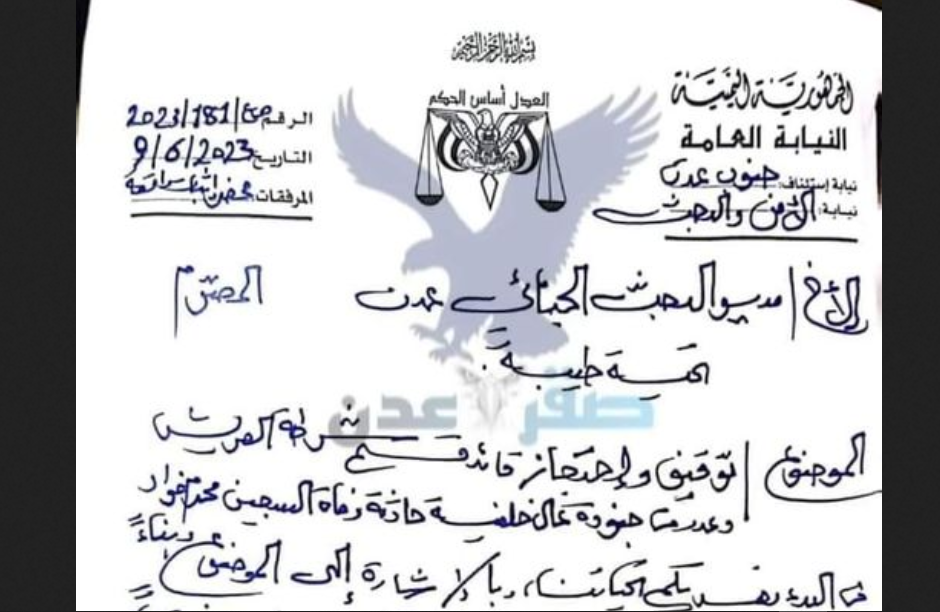 بسم الله الرحمن الرحيم
الجمهورية اليمنية
النيابة العامة
نيابة إستئناف: جنوب عدن
نيابة: الأمن والبحث
العدل أساس الحكم
الرقم 2023/181/
التاريخ 9/6/2023
المرفقات: محضر إثبات
الأخ/ مدير البحث الجنائي عدن المحترم
تحية طيبة..
صقر عدن
الموضوع/ توقيف وإحتجاز قائد قسم شرطة العريش
وعدد من جنوده على خلفية حادثة وفاة السجين محمد
في البدء نهديكم تحياتنا، وبالإشارة إلى الموضوع وبناءً